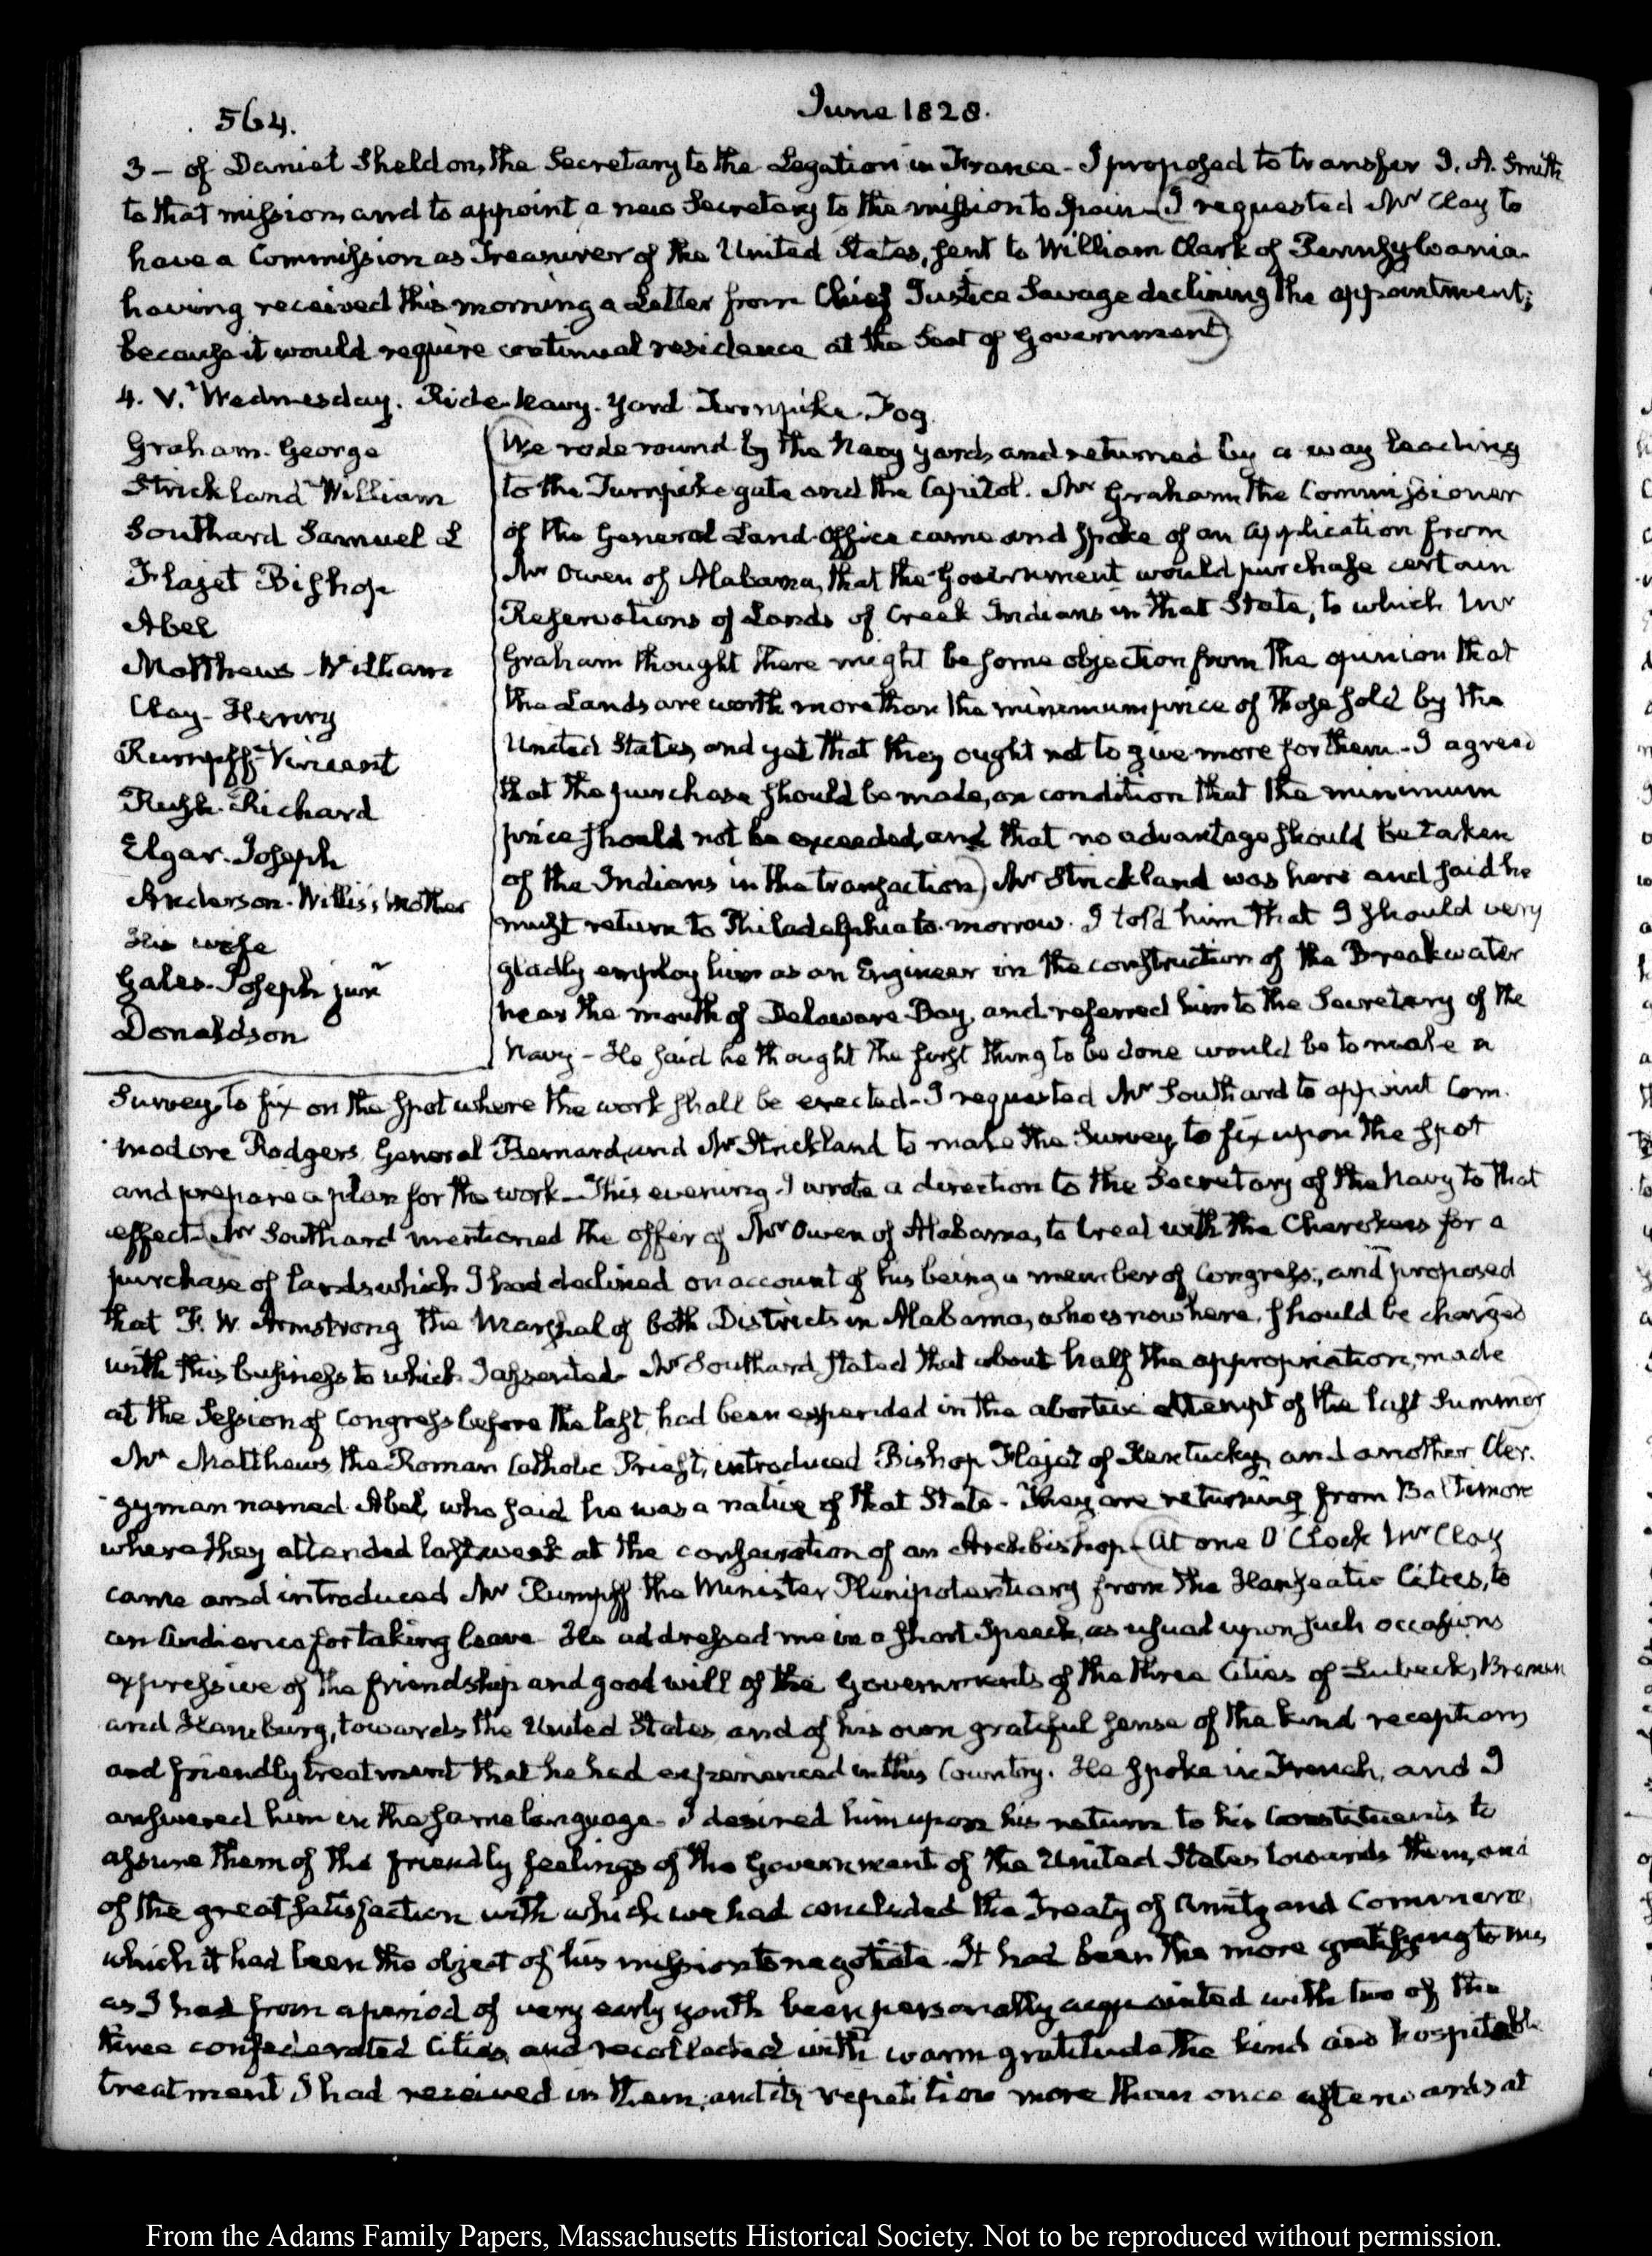 564.
June 1828.
3 – of Daniel Sheldon, the Secretary to the Legation in France – I proposed to transfer J. A. Smith
to that mission, and to appoint a new Secretary to the mission to Spain – (I requested Mr Clay to
have a Commission as Treasurer of the United States, sent to William Clark of Pennsylvania
having received this morning a Letter from Chief Justice Savage declining the appointment;
because it would require continual residence at the Seat of Government)
4. V. Wednesday. Ride Navy-Yard Turnpike. Fog.
Graham. George
Strickland William
Southard Samuel L
Flaget Bishop
Abel
Matthews – William
Clay – Henry
Rumpff – Vincent
Rush. Richard
Elgar. Joseph
Anderson. Willis's Mother
His wife
Gales. Joseph junr
Donaldson
(We rode round by the Navy yard, and returned by a way leading
to the Turnpike gate and the Capitol. Mr Graham the Commissioner
of the General Land-Office came and spoke of an application from
Mr Owen of Alabama, that the Government would purchase certain
Reservations of Lands of Creek Indians in that State, to which Mr
Graham thought there might be some objection from the opinion that
the Lands are worth more than the minimum price of those sold by the
United States, and yet that they ought not to give more for them. – I agreed
that the purchase should be made, on condition that the minimum
price should not be exceeded, and that no advantage should be taken
of the Indians in the transaction) Mr Strickland was here and said he
must return to Philadelphia to-morrow. I told him that I should very
gladly employ him as an Engineer in the construction of the Breakwater
near the mouth of Delaware Bay, and referred him to the Secretary of the
Navy – He said he thought the first thing to be done would be to make a
Survey, to fix on the spot where the work shall be erected – I requested Mr Southard to appoint Com-
modore Rodgers, General Bernard, and Mr Strickland to make the Survey, to fix upon the spot
and prepare a plan for the work – This evening I wrote a direction to the Secretary of the Navy to that
effect – (Mr Southard mentioned the offer of Mr Owen of Alabama, to treat with the Cherokees for a
purchase of lands, which I had declined on account of his being a member of Congress; and proposed
that F. W. Armstrong the Marshal of both Districts in Alabama, who is now here, should be charged
with this business to which I assented. Mr Southard stated that about half the appropriation, made
at the Session of Congress before the last, had been expended in the abortive attempt of the last Summer)
Mr Matthews the Roman Catholic Priest, introduced Bishop Flajet of Kentucky, and another Cler-
gyman named Abel, who said he was a native of that State – They are returning from Baltimore
where they attended last week at the consecration of an Archbishop – (At one O'Clock Mr Clay
came and introduced Mr Rumpff the Minister Plenipotentiary from the Hanseatic Cities, to
an Audience for taking leave – He addressed me in a short Speech, as usual upon such occasions
expressive of the friendship and good will of the Governments of the three Cities of Lubeck, Bremen
and Hamburg, towards the United States, and of his own grateful sense of the kind reception,
and friendly treatment that he had experienced in this Country. He spoke in French, and I
answered him in the same language – I desired him upon his return to his Constituents to
assure them of the friendly feelings of the Government of the United States towards them, and
of the great satisfaction with which we had concluded the Treaty of Amity and Commerce,
which it had been the object of his mission to negotiate – It had been the more gratifying to me,
as I had from a period of very early youth been personally acquainted with two of the
three confederated Cities, and recollected with warm gratitude the kind and hospitable
treatment I had received in them, and its repetition more than once afterwards at
From the Adams Family Papers, Massachusetts Historical Society. Not to be reproduced without permission.